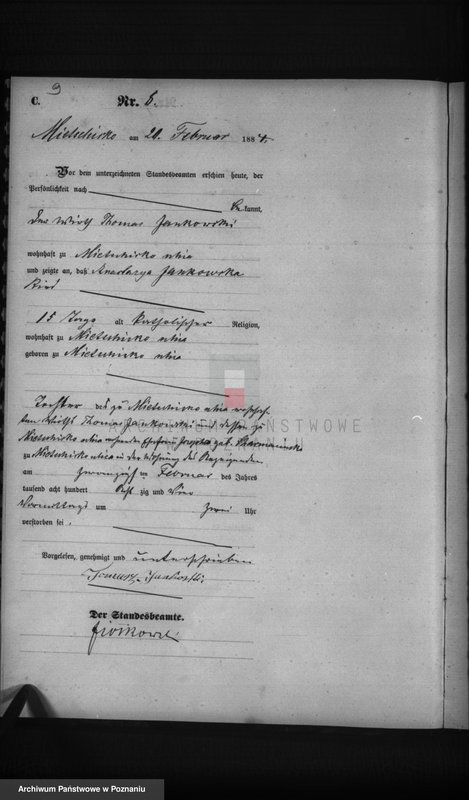 9
C.
Nr. 6.
Mietschisko am 21. Februar 1884.
Vor dem unterzeichneten Standesbeamten erschien heute, der
Persönlichkeit nach
be kannt,
der Wirth Thomas Jankowski
wohnhaft zu Mietschisko
und zeigte an, daß Anastazya Jankowska
Kind
15 Tage alt katholischer Religion,
wohnhaft zu Mietschisko
geboren zu Mietschisko
Tochter des zu Mietschisko
Wirth Thomas Jankowski und dessen
Mietschisko Ehefrau geb.
zu Mietschisko in der Wohnung des Anzeigenden
am zwanzigsten Februar des Jahres
tausend acht hundert acht zig und vier
Vormittags um zwei Uhr
verstorben sei.
Vorgelesen, genehmigt und unterschrieben
Jankowski
Der Standesbeamte.
ARCHIWUM PAŃSTWOWE
W POZNANIU
Archiwum Państwowe w Poznaniu